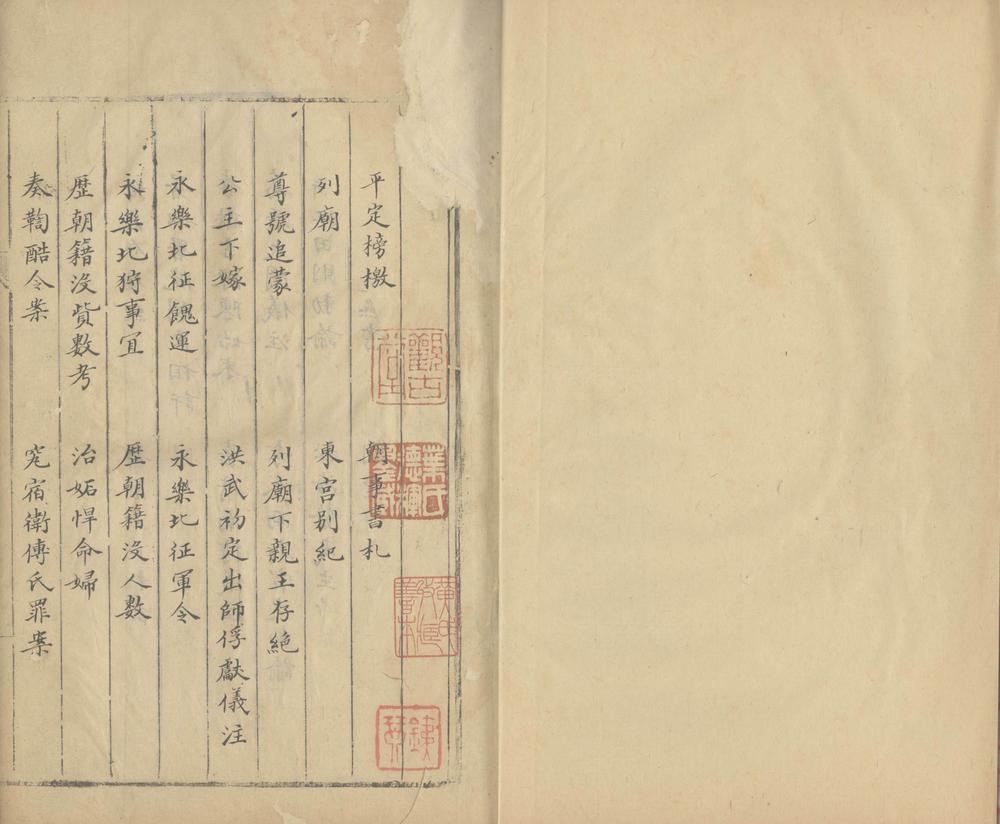 平定榜檄 朝事書札
列廟 東宮別紀
尊號追蒙 列廟下親王存絶
公主下嫁 洪武初定出師俘獻儀注
永樂北征餽運 永樂北征軍令
永樂北狩事宜 歷朝籍沒人數
歷朝籍沒貲數考 治妬悍命婦
奏鞫酷令案 究宿衛傅氏罪案
觀古堂
葉氏德輝鑒藏